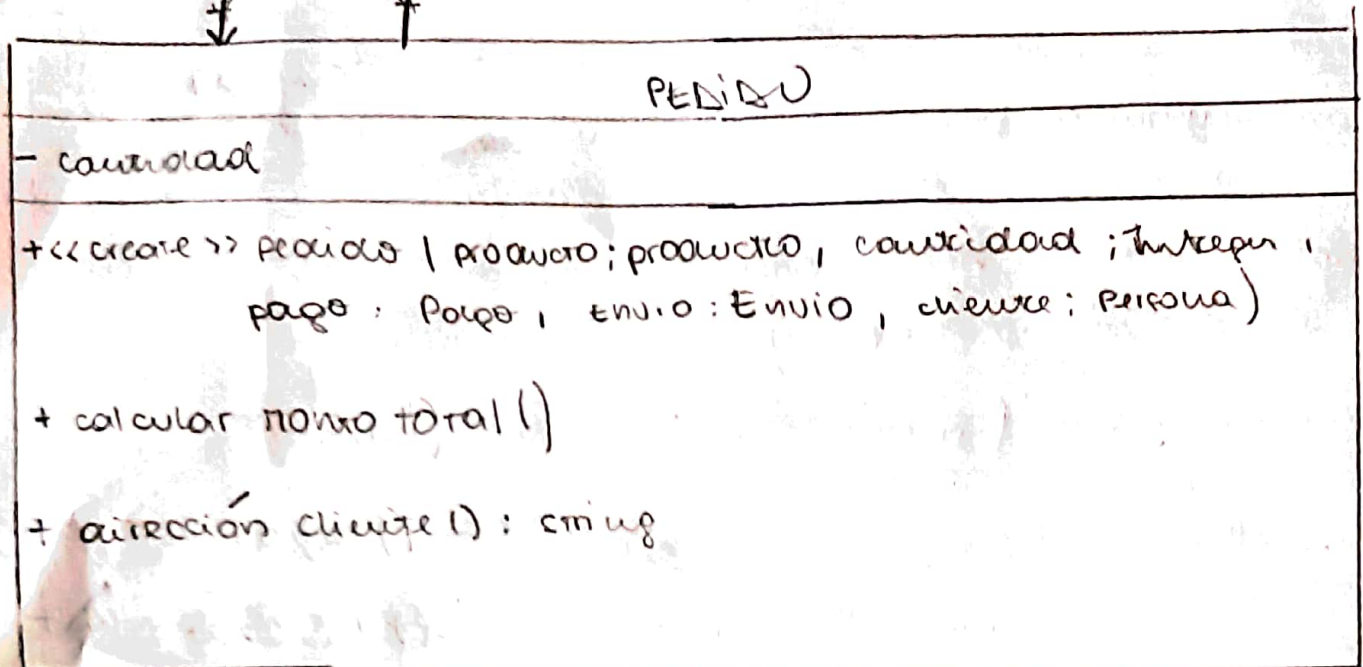 PEDiDO
- cantidad
+<<create>> pedido (producto; producto, cantidad ; Integer,
pago : Pago, Envio : Envio, cliente ; Persona)
+ calcular monto total ()
+ dirección cliente () : string